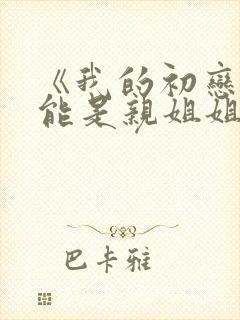 《我的初戀
能是親姐姐
巴卡雅